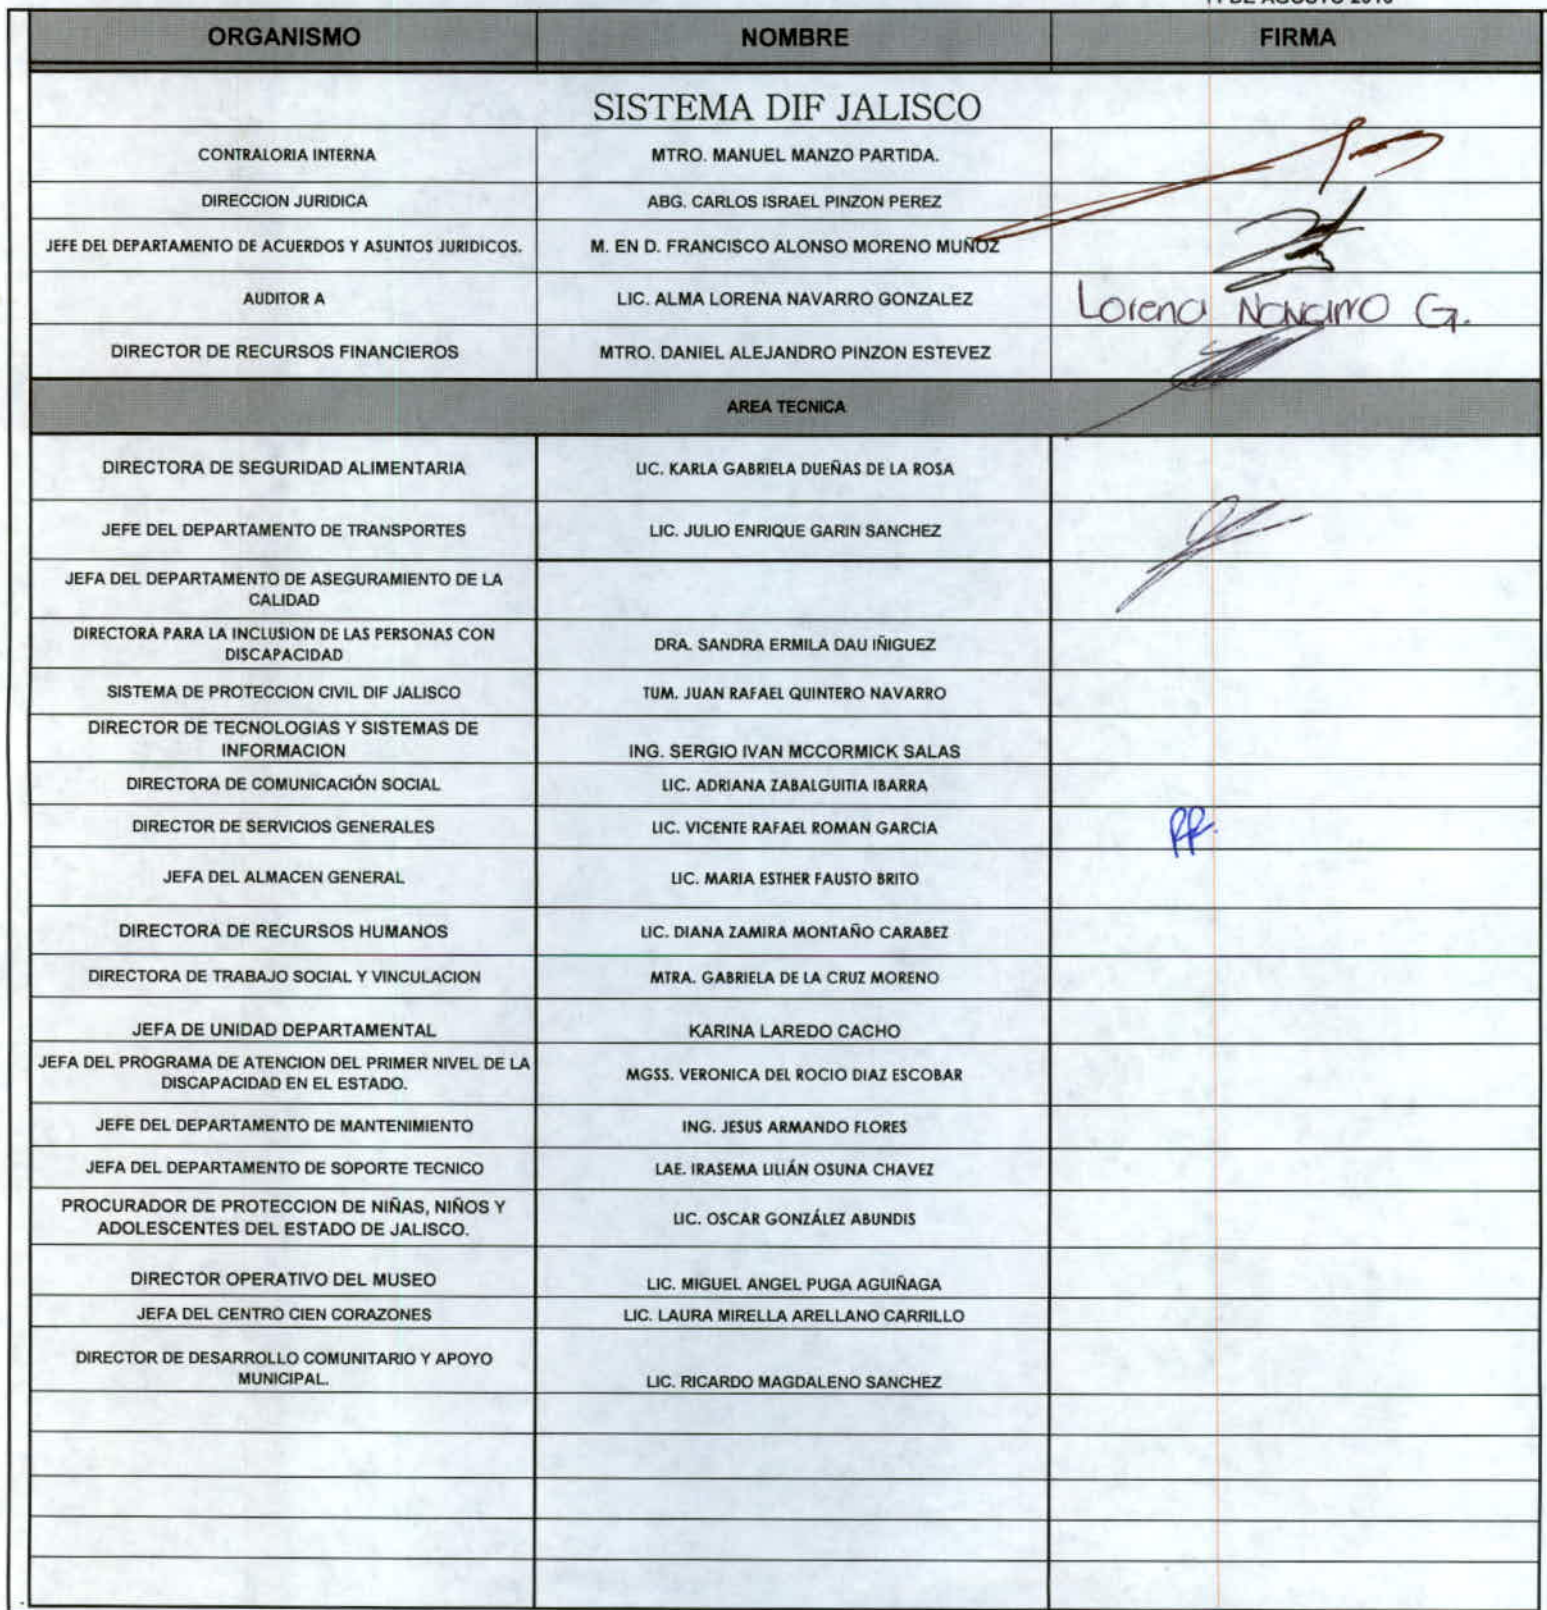 DE AGOSTO
ORGANISMO NOMBRE FIRMA
SISTEMA DIF JALISCO
CONTRALORIA INTERNA MTRO. MANUEL MANZO PARTIDA.
DIRECCION JURIDICA ABG. CARLOS ISRAEL PINZON PEREZ
JEFE DEL DEPARTAMENTO DE ACUERDOS Y ASUNTOS JURIDICOS. M. EN D. FRANCISCO ALONSO MORENO MUÑOZ
AUDITOR A LIC. ALMA LORENA NAVARRO GONZALEZ Lorena Navarro G.
DIRECTOR DE RECURSOS FINANCIEROS MTRO. DANIEL ALEJANDRO PINZON ESTEVEZ
AREA TECNICA
DIRECTORA DE SEGURIDAD ALIMENTARIA LIC. KARLA GABRIELA DUEÑAS DE LA ROSA
JEFE DEL DEPARTAMENTO DE TRANSPORTES LIC. JULIO ENRIQUE GARIN SANCHEZ
JEFA DEL DEPARTAMENTO DE ASEGURAMIENTO DE LA
CALIDAD
DIRECTORA PARA LA INCLUSION DE LAS PERSONAS CON
DISCAPACIDAD DRA. SANDRA ERMILA DAU IÑIGUEZ
SISTEMA DE PROTECCION CIVIL DIF JALISCO TUM. JUAN RAFAEL QUINTERO NAVARRO
DIRECTOR DE TECNOLOGIAS Y SISTEMAS DE
INFORMACION ING. SERGIO IVAN MCCORMICK SALAS
DIRECTORA DE COMUNICACIÓN SOCIAL LIC. ADRIANA ZABALGUITIA IBARRA
DIRECTOR DE SERVICIOS GENERALES LIC. VICENTE RAFAEL ROMAN GARCIA
JEFA DEL ALMACEN GENERAL LIC. MARIA ESTHER FAUSTO BRITO
DIRECTORA DE RECURSOS HUMANOS LIC. DIANA ZAMIRA MONTAÑO CARABEZ
DIRECTORA DE TRABAJO SOCIAL Y VINCULACION MTRA. GABRIELA DE LA CRUZ MORENO
JEFA DE UNIDAD DEPARTAMENTAL KARINA LAREDO CACHO
JEFA DEL PROGRAMA DE ATENCION DEL PRIMER NIVEL DE LA
DISCAPACIDAD EN EL ESTADO. MGSS. VERONICA DEL ROCIO DIAZ ESCOBAR
JEFE DEL DEPARTAMENTO DE MANTENIMIENTO ING. JESUS ARMANDO FLORES
JEFA DEL DEPARTAMENTO DE SOPORTE TECNICO LAE. IRASEMA LILIÁN OSUNA CHAVEZ
PROCURADOR DE PROTECCION DE NIÑAS, NIÑOS Y
ADOLESCENTES DEL ESTADO DE JALISCO. LIC. OSCAR GONZÁLEZ ABUNDIS
DIRECTOR OPERATIVO DEL MUSEO LIC. MIGUEL ANGEL PUGA AGUIÑAGA
JEFA DEL CENTRO CIEN CORAZONES LIC. LAURA MIRELLA ARELLANO CARRILLO
DIRECTOR DE DESARROLLO COMUNITARIO Y APOYO
MUNICIPAL. LIC. RICARDO MAGDALENO SANCHEZ